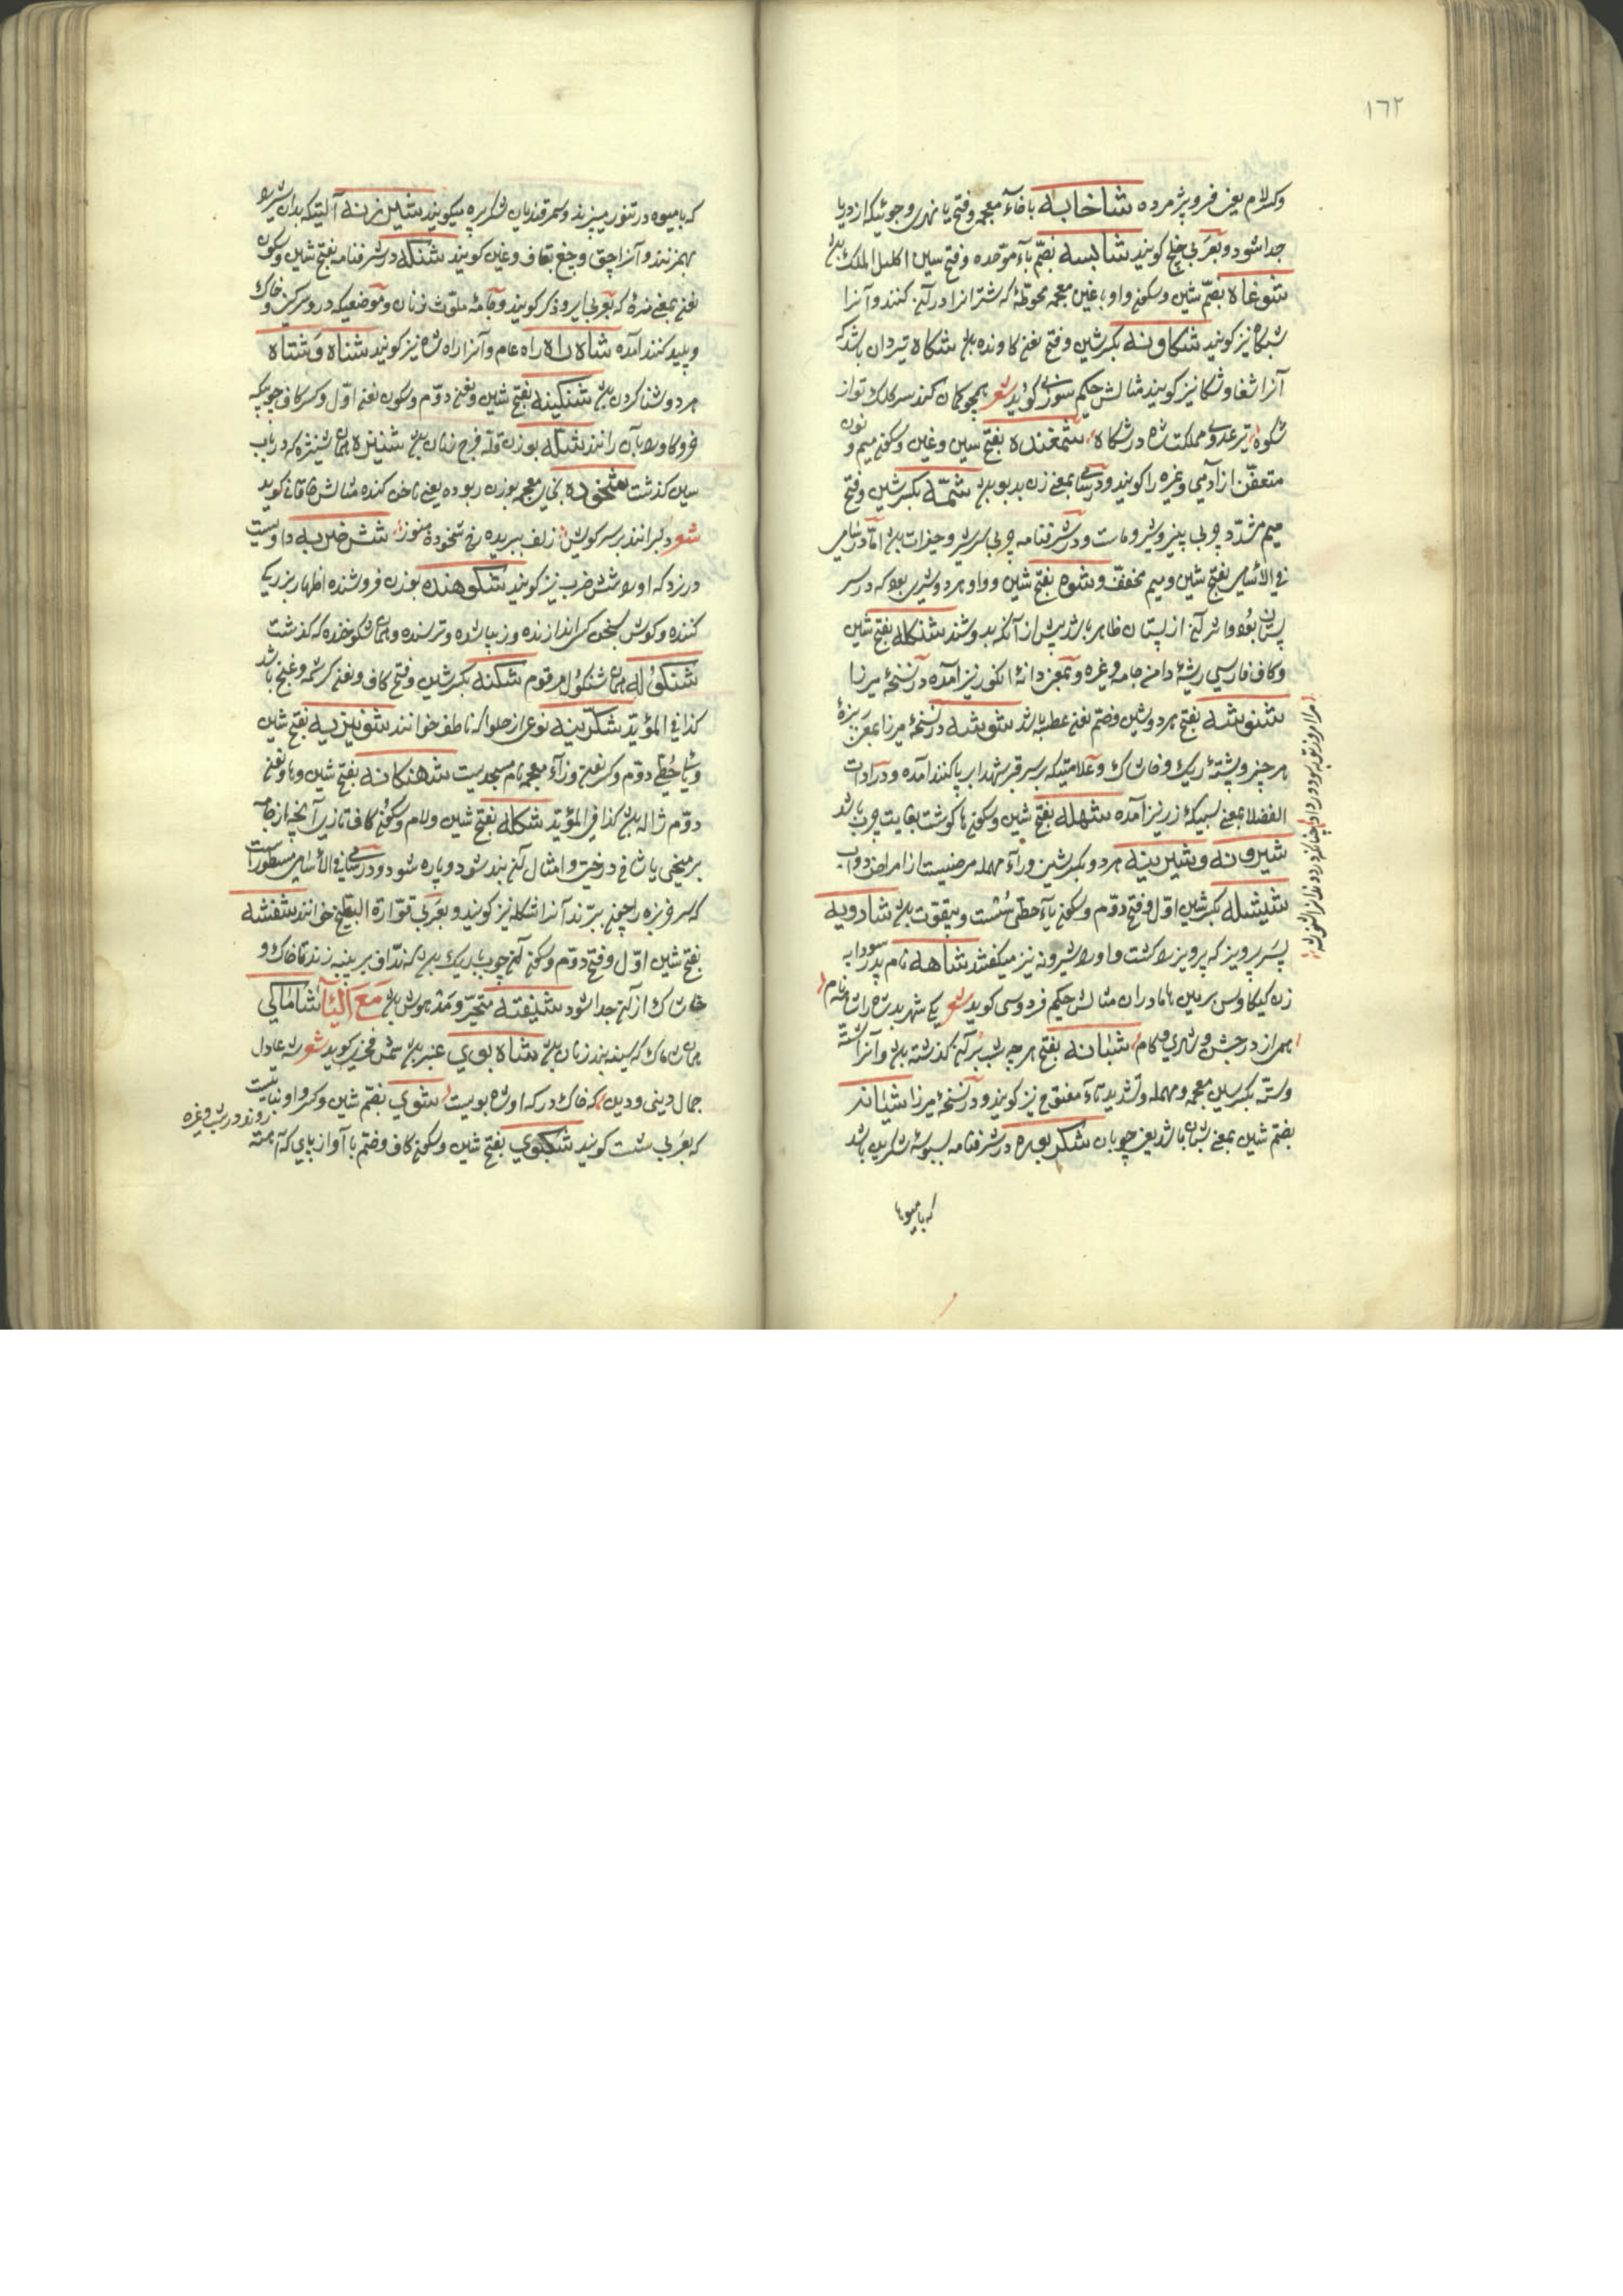 ١٦٢
وکسر لام یعنی فرو پژمرده شاخابه با خاء معجمه و فتح با نهری و جوئیکه از دریا
جدا شود و بعربی خلیج کویند شابسه بضمّ باء موّحده و فتح سین اکلیل الملک باشد
شوغاه بضمّ شین و سکون واو با غین معجمه محوطهٔ که شترانرا در آن کنند و آنرا
شبکاه نیز کویند شکاونه بکسر شین و فتح نون کاونده باشد شکاه تیردان باشد که
آنرا شغا و شکا نیز کویند مثالش حکیم سوزنی کوید شعر همچو کمان کند سر کلک تو از
شکوه تیر عدوی مملکت شاه در شکاه شمغنده بفتح شین و غین و سکون میم و نون
متعفّن از آدمی و غیره را کویند و در سامی بمعنی زن بدبو باشد شمّه بکسر شین و فتح
میم مشدّد چربی پنیر و شیر و ماست و در شرفنامه چربی سر شیر و جغرات باشد امّا در سامی
فی الأسامی بفتح شین و میم مخفف و شوه بفتح شین و واو هر دو شیری بود که در سر
پستان بود و اثر آن از پستان ظاهر باشد پیش از آنکه بدوشند شنکله بفتح شین
و کاف فارسی ریشهٔ دامن جامه و غیره و بمعنی دانهٔ انکور نیز آمده در نسخهٔ میرزا
شنوشه بفتح هر دو شین و ضمّ نون عطسه باشد شوشه در نسخهٔ میرزا بمعنی ریزهٔ
هر چیز و پشتهٔ ریک و خاشاک و علامتیکه بر سر قبر شهدا بر پا کنند آمده و در ادات
الفضلا بمعنی سبیکهٔ زر نیز آمده شهله بفتح شین و سکون ها کوشت بغایت چرب باشد
شیرونه و شیرینه هر دو بکسر شین و راء مهمله مرضیست از امراض دواب
شیشله بکسر شین اوّل و فتح دوّم و سکون یاء حطّی سُست و بیقوّت باشد شادرویه
پسر پرویز که پرویز را کشت و او را شیرونه نیز میکفتند شاهه نام پدر سودابه
زن کیکاوس بسرزمین هاماوران مثالش حکیم فردوسی کوید شعر یکی شهر بد شاه را شاهه نام
همه از در جشن و شادی و کام شبانه بفتح هر چه شب بر آن کذشته باشد و آنرا شته
و ستّه بکسر شین معجمه و مهمله و تشدید تاء مفتوح نیز کویند و در نسخهٔ میرزا شبانه
بضمّ شین بمعنی شبان باشد یعنی چوپان شکر بوره در شرفنامه سنبوسهٔ شکرین باشد
که با میوها
که با میوه در تنور میپزند و سمرقندیان شکر پره میکویند شیرزنه آلتیکه بدان شیر را
بهم زنند و آنرا چق و چغ بقاف و غین کویند شنکه در شرفنامه بفتح شین و سکون
نون بمعنی نره که بعربی ایر و ذکر کویند و جامهٔ ملوّث زنان و موضعیکه در و سرکین و خاک
و پلید کنند آمده شاه راه راه عام و آنرا راه شاه نیز کویند شناه و شتاه
هر دو شنا کردن باشد شنکینه بفتح شین و نون دوّم و سکون نون اوّل و کسر کاف چوبیکه
خر و کاو را بآن رانند شله بوزن قله فرج زنان باشد شنیزه همان شینژه که در باب
سین کذشت شخوده بخای معجمه بوزن ربوده یعنی ناخن کنده مثالش خاقانی کوید
شعر دلبرانند بر سر کورش زلف ببریده رخ شخوده هنوز شش ضربه داویست
در نرد که او را شش ضرب نیز کویند شکوهنده بوزن فروشنده اظهار بزرکی
کننده و کوش بسخن کسی اندازنده و زیبا شده و ترسنده و همان شکوخنده که کذشت
شنکوله همان شنکول مرقوم شکنه بکسر شین و فتح کاف و نون کرشمه و غنج باشد
کذا فی المؤیّد شکرینه نوعی از حلوا که ناطف خوانند شونیزیه بفتح شین
و یای حُطّی دوّم و کسر نون و زاء معجمه نام مسجدیست شهنکانه بفتح شین و ها و نون
دوّم ژاله باشد کذا فی المؤیّد شکله بفتح شین و لام و سکون کاف تازی آنچه از جامه
بر میخی یا شاخ درخت و امثال آن بند شود و پاره شود و در سامی فی الأسامی مسطور است
که سر خربزه را چون ببرّند آنرا شکله نیز کویند و بعربی قوّارة البطّیخ خوانند شفشه
بفتح شین اوّل و فتح دوّم و سکون آن چوب باریک باشد که ندّاف بر پنبه زند تا خاک و
خاشاک از آن جدا شود شیفته متحیّر و مدهوش باشد مَعَ الیَآ شاماکی
همان شاماک که سینه بند زنان باشد شاه بوی عنبر باشد شمس فخری کوید شعر شه عادل
جمال دینی و دین که خاک درکه او شاه بویست شوی بضمّ شین و کسر واو نباتیست
که بعربی شبت کویند شکبوی بفتح شین و سکون کاف و ضمّ با آواز پای که آهسته
روند در شب و غیره